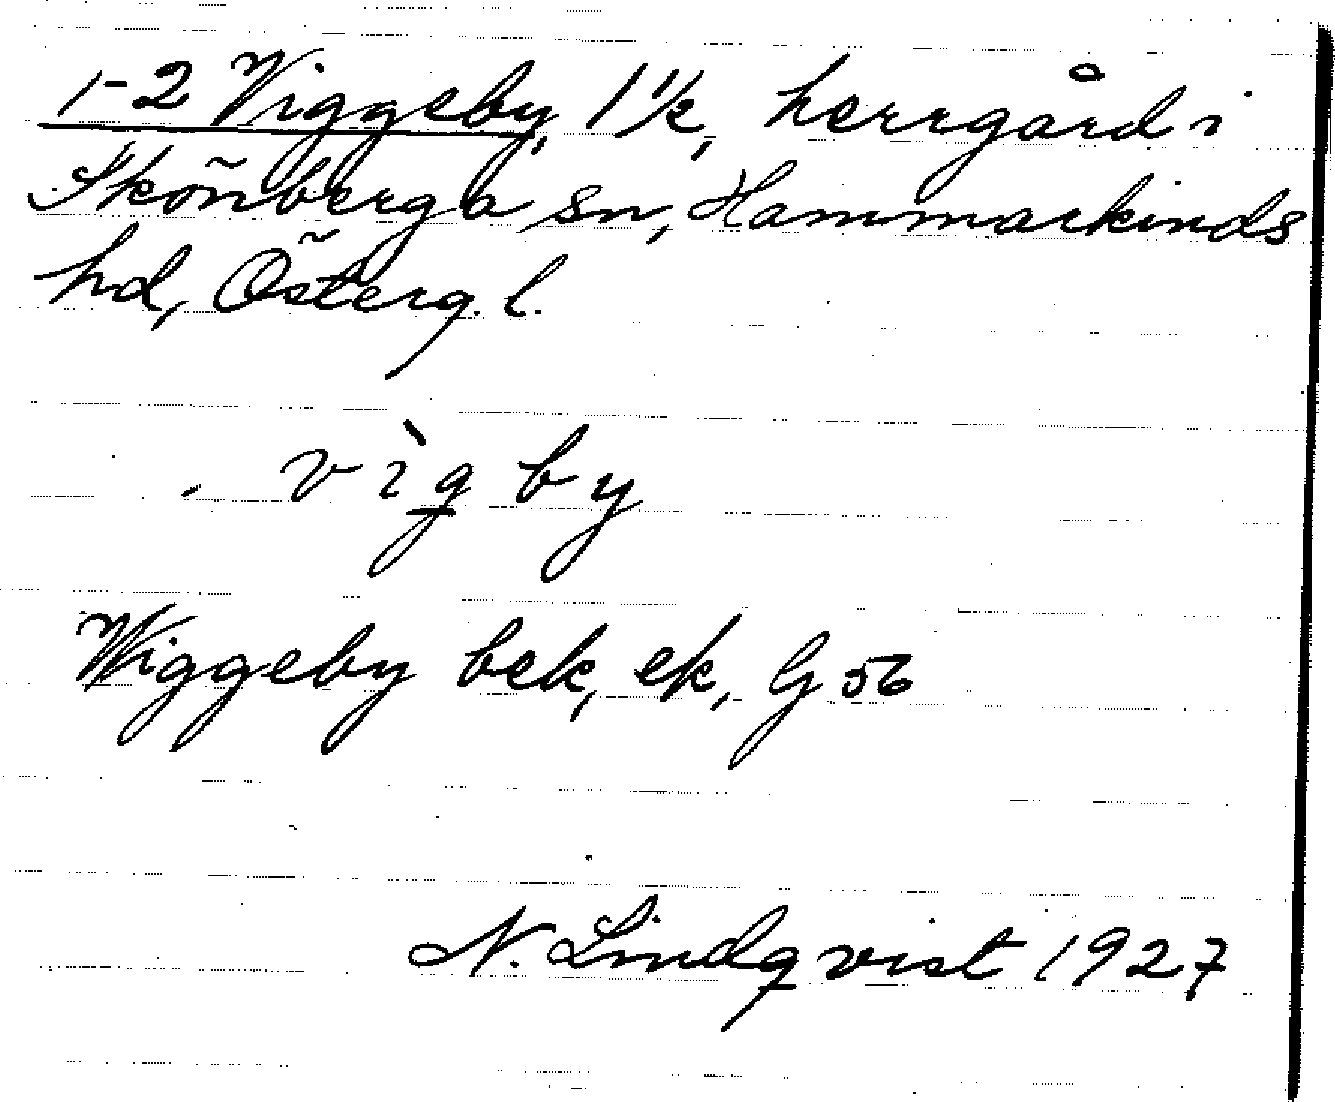 1-2 Viggeby, 1 1/2, herrgård i
Skönberga sn, Hammarkinds
hd, Österg. l.
vìg by
Wiggeby bek, ek, G 56
N. Lindqvist 1927